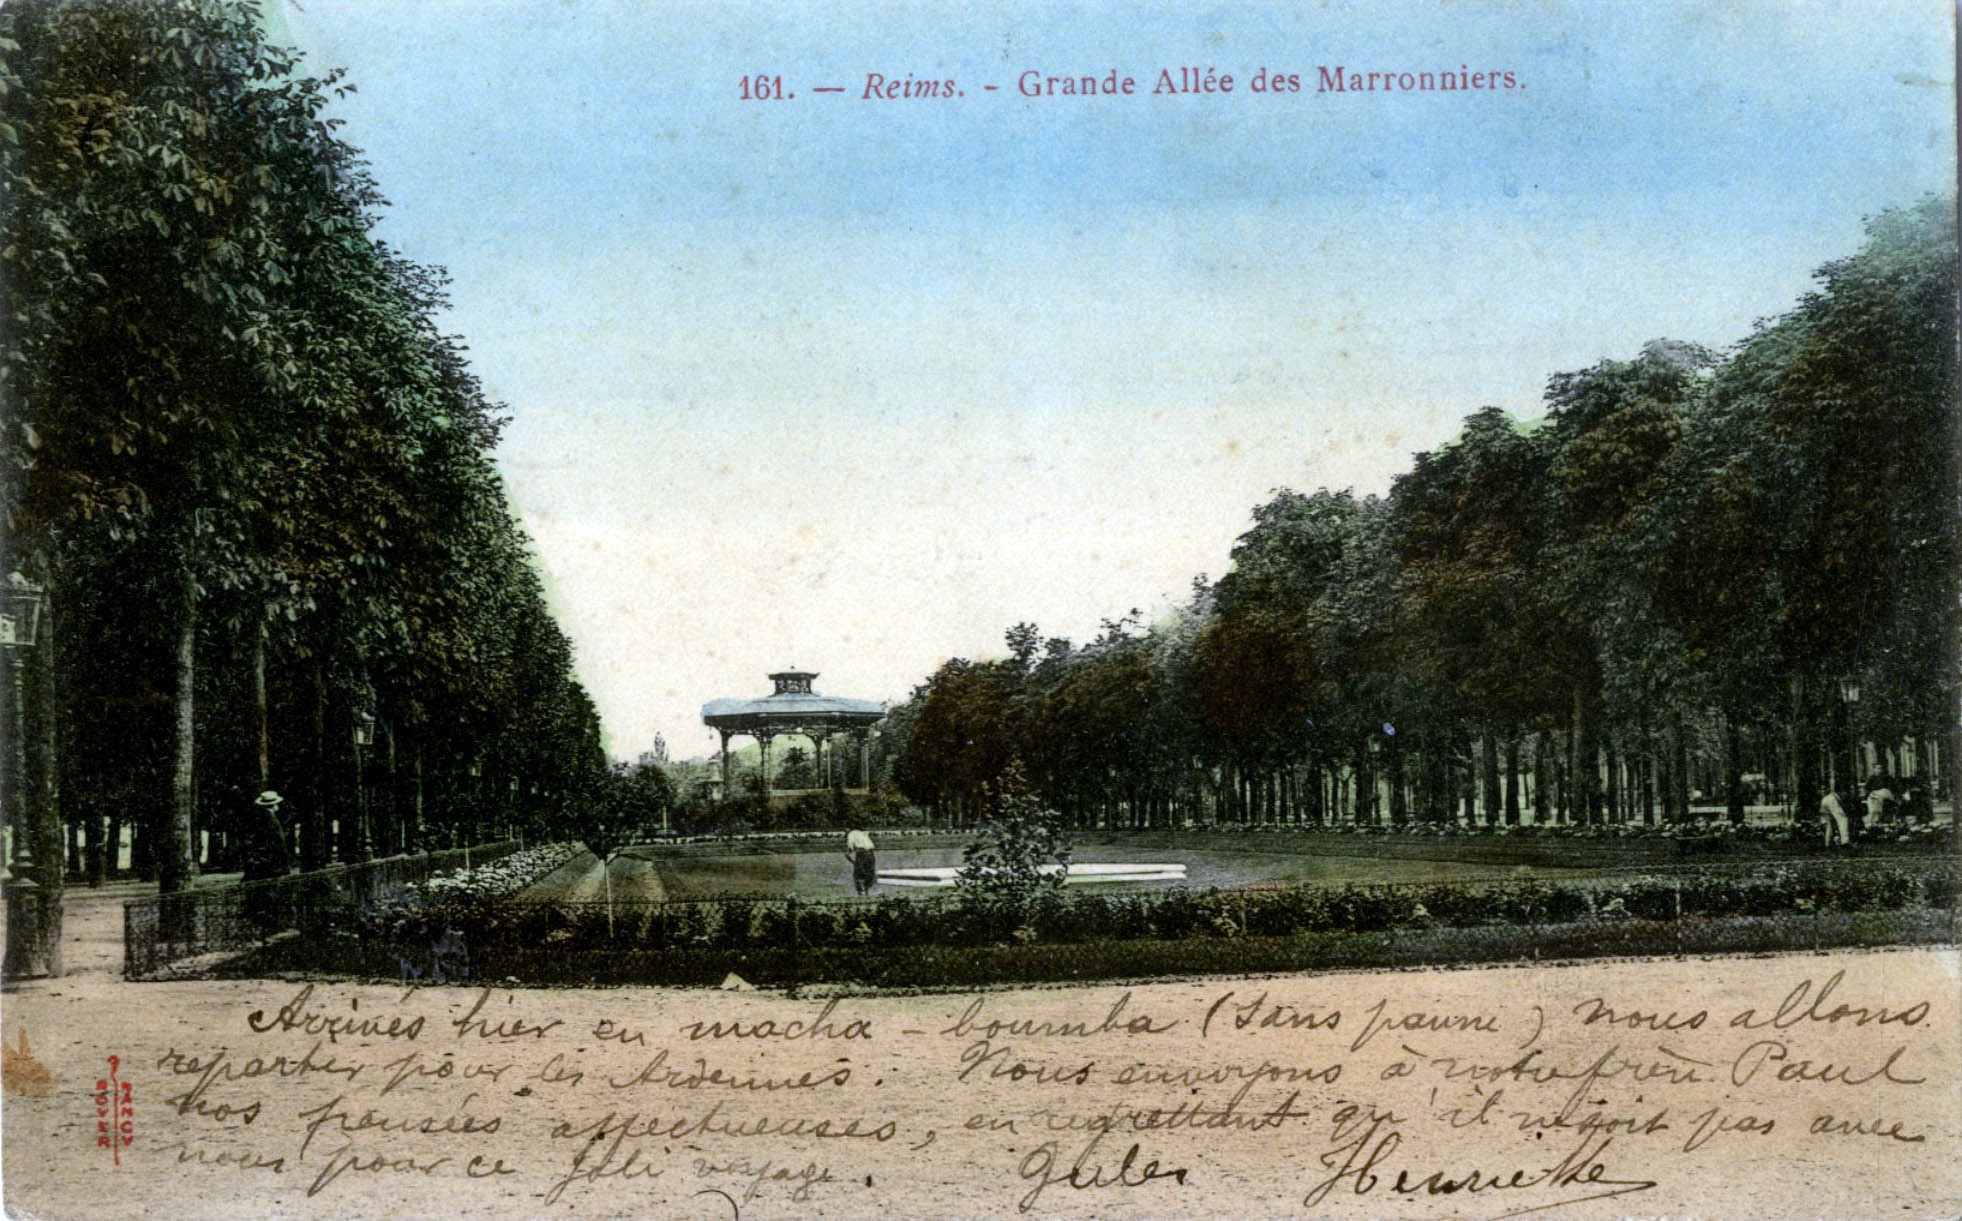 161. — Reims. - Grande Allée des Marronniers.
Arrivés hier en mocha - boumba (sans panne) nous allons
repartir pour les Ardennes. Nous envoyons à notre frère Paul
nos pensées affectueuses, en regrettant qu'il ne soit pas avec
nous pour ce joli voyage.
Jules Henriette
ROYER
NANCY